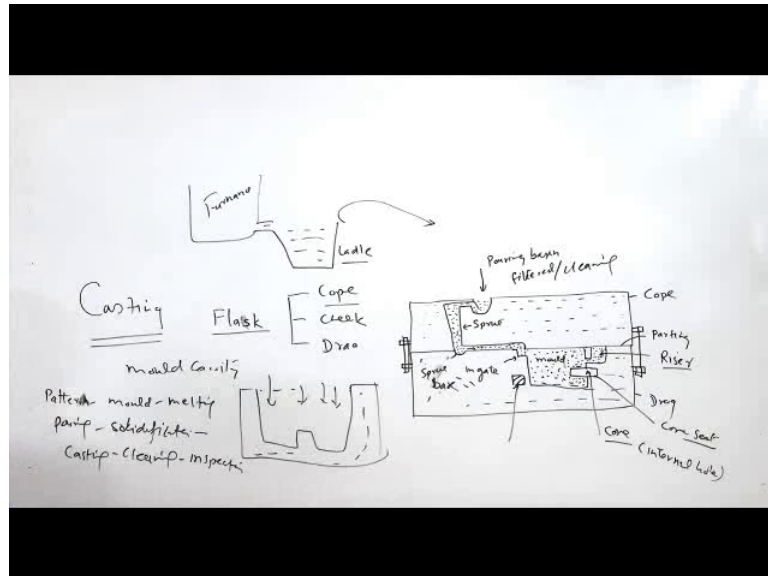 Furnance
Ladle
Casting
Flask
Cope
Cheek
Drag
mould cavity
Pattern - mould - melting
Paring - solidification -
Casting - Cleaning - inspection
Pouring basin
filtered/cleaning
Sprue
Sprue
base
ingate
mould
Cope
Parting
Riser
Drag
Core seat
Core (internal hole)